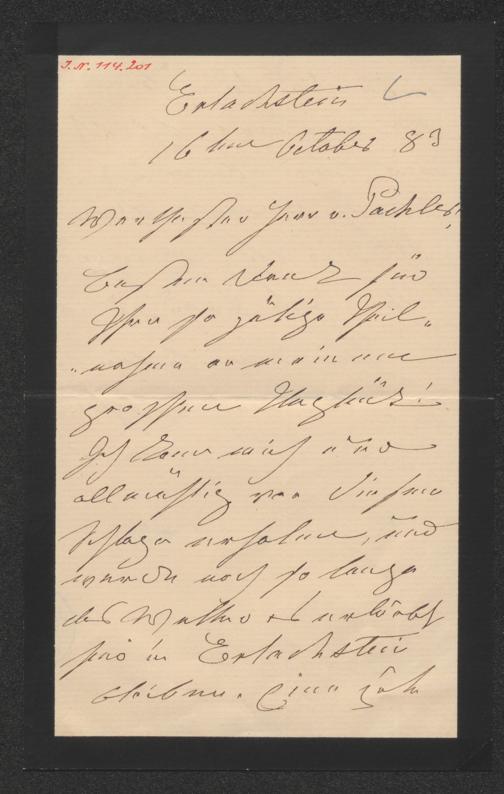 J.N. 114.201
Erlachstein
16ten October 83
Werthester Herr v. Pachler!
Besten Dank für
Ihre so gütige Theil-
-nahme an meinem
grossen Unglück!
Ich kann mich nur
allmählig von diesem
Schlage erholen, und
werde noch so lange
das Wetter es erlaubt
hier in Erlachstein
bleiben. Eine